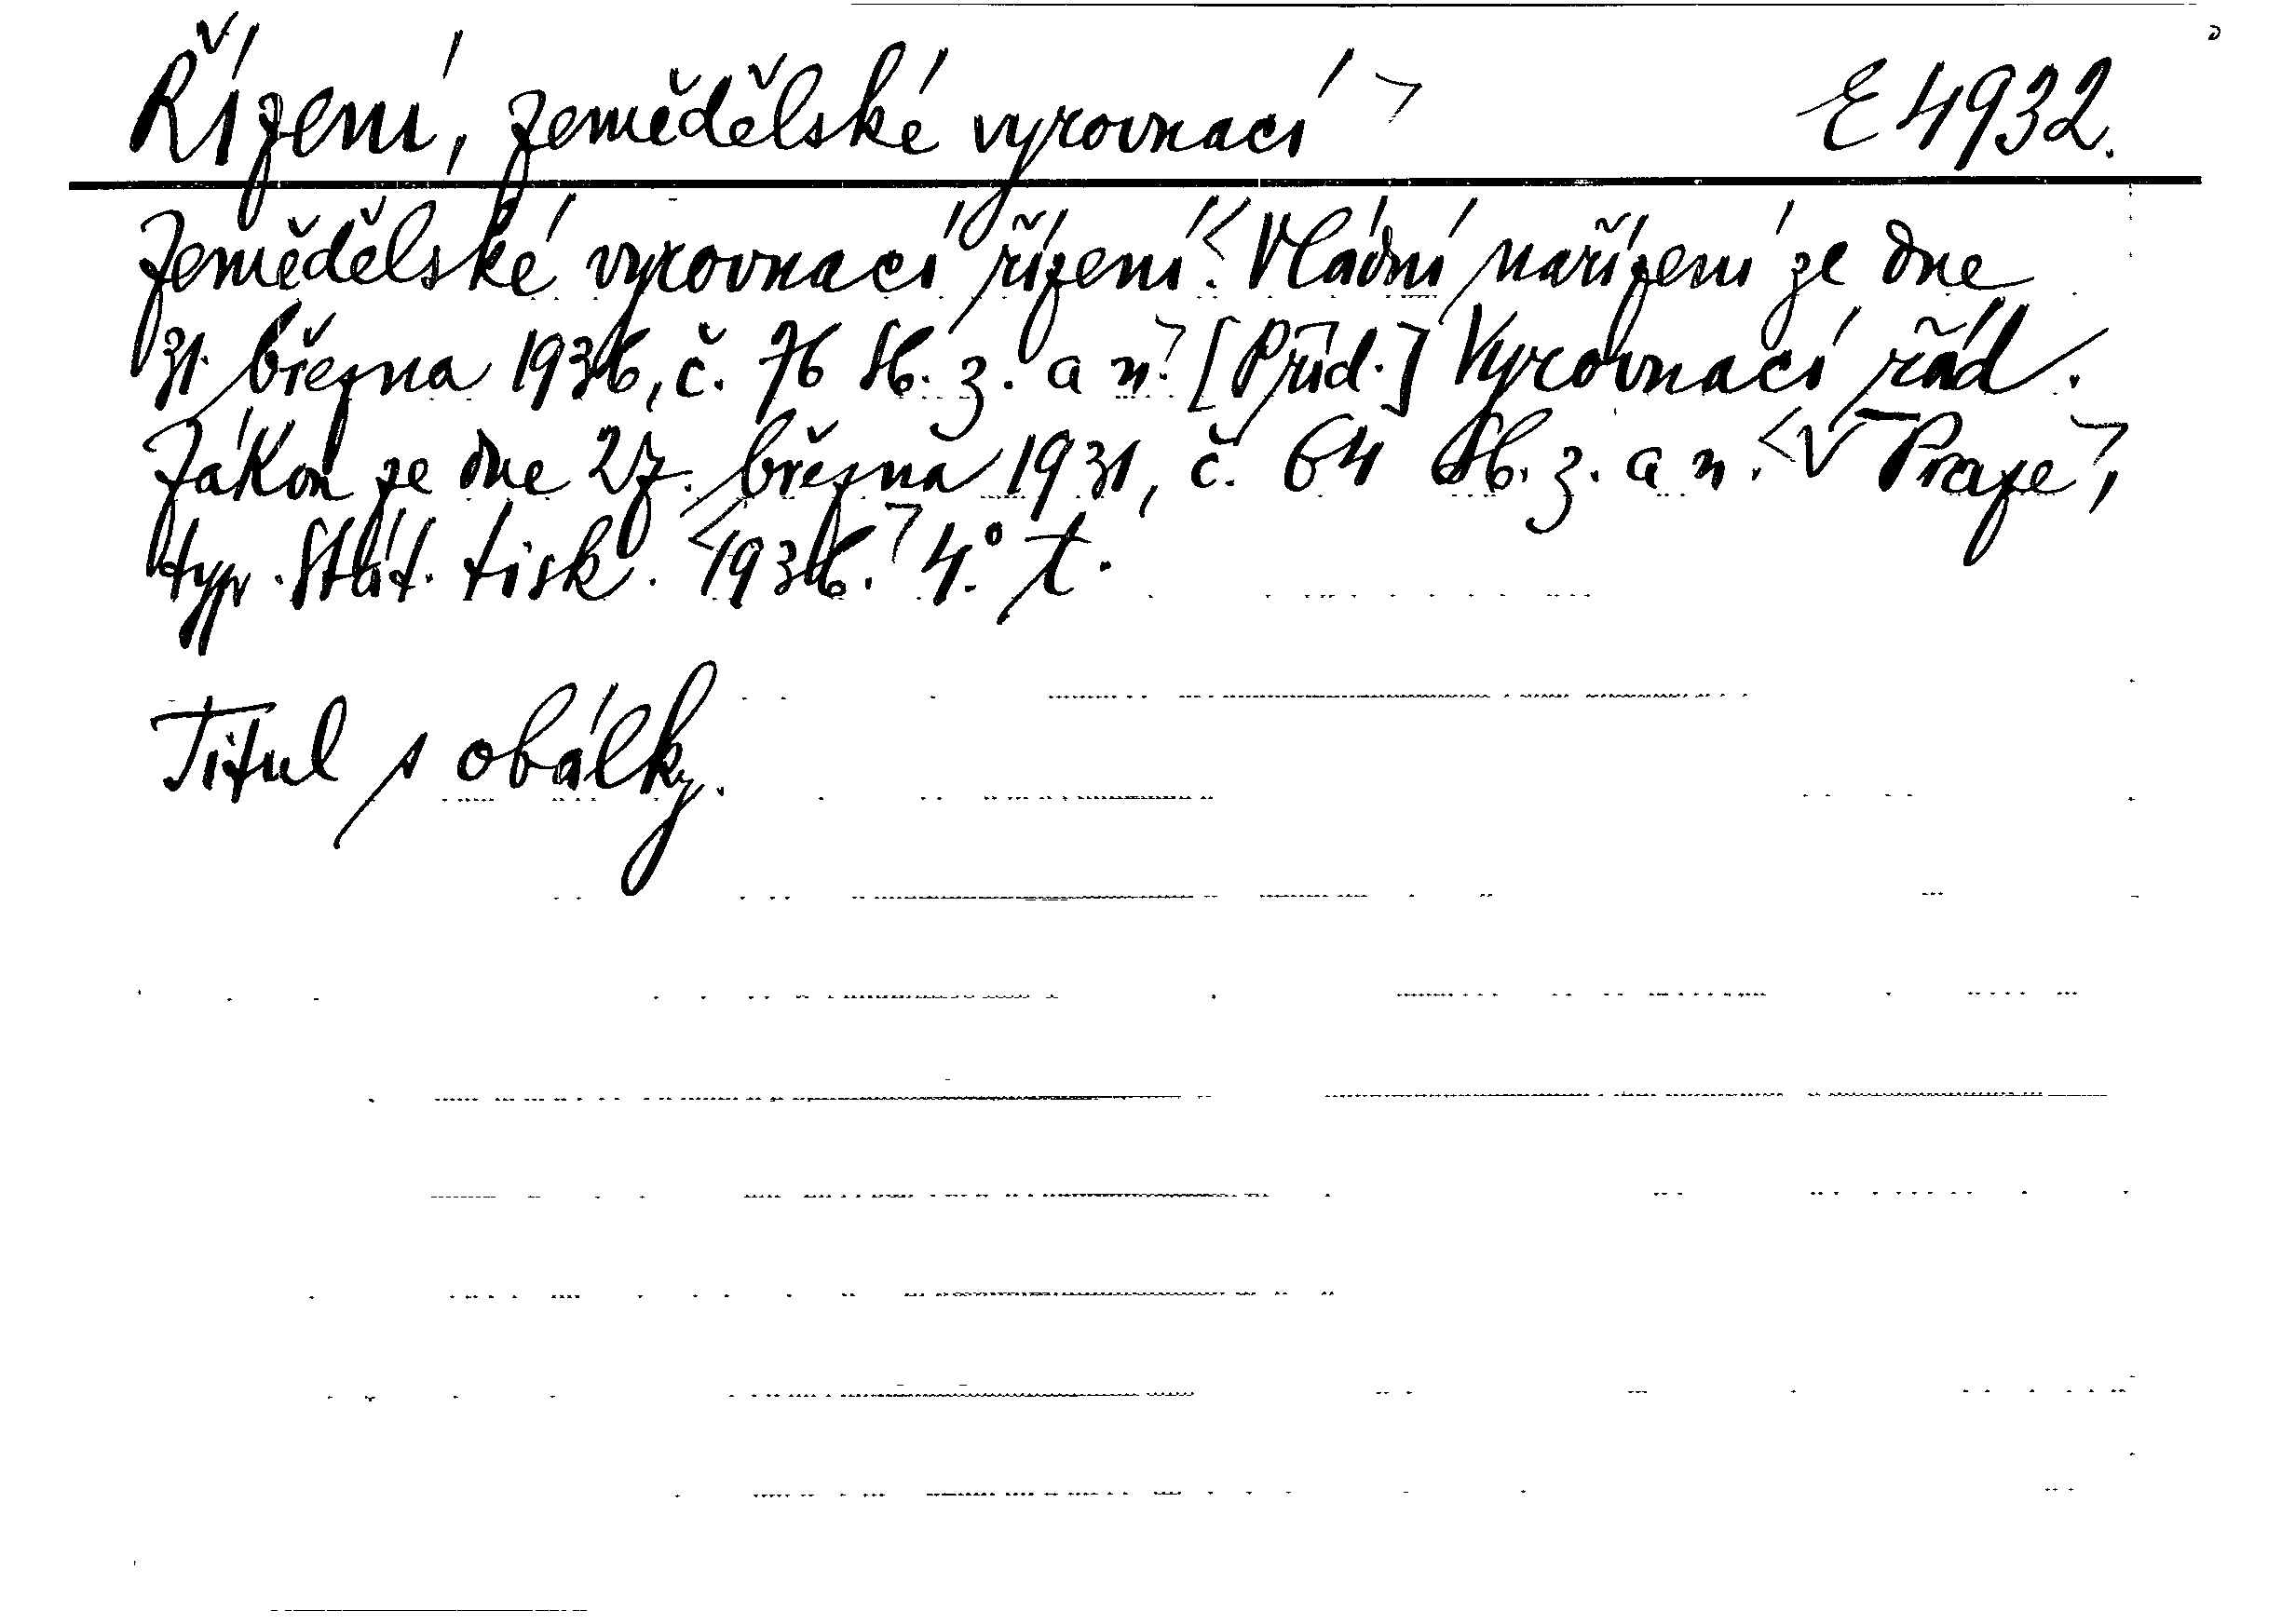 Řízení, zemědělské vyrovnací ㄱ E 4932.
Zemědělské vyrovnací řízení. < Vládní nařízení ze dne
31. března 1936, č. 76 Sb. z. a n. ㄱ [Příd.] Vyrovnací řád.
Zákon ze dne 27. března 1931, č. 64 Sb. z. a n. < V Prazeㄱ,
typ. Stát. tisk. <1936.ㄱ 4.° t.
Titul s obálky.